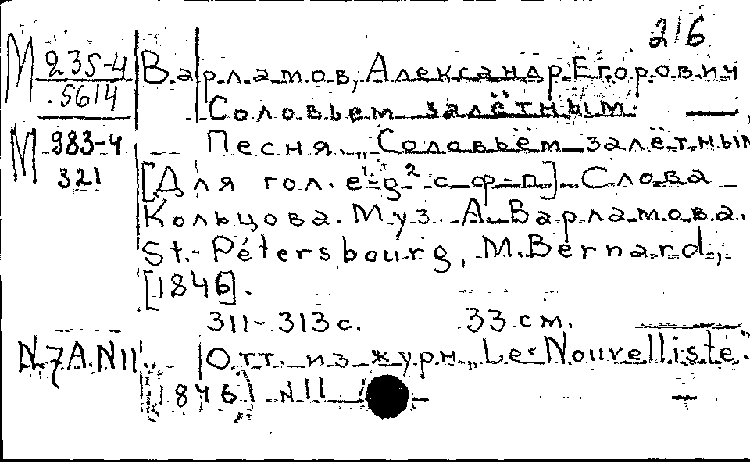 216
М 235-4 Варламов, Александр Егорович
5614 Соловьем залётным.
М 983-4 Песня „Соловьём залётным
321 [Для гол. e¹-g² с ф-п]. Слова
Кольцова. Муз. А. Варламова.
St.-Pétersbourg, M. Bernard,
[1846].
311-313 с. 33 см.
N7A.N11. Отт. из журн. „Le Nouvelliste"
(1846) N11